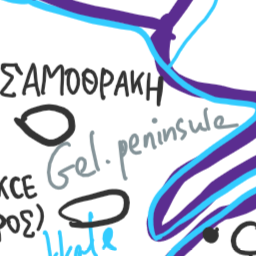 ΣΑΜΟΘΡΑΚΗ
Gel. peninsula
ΚCE
ΡΟΣ)